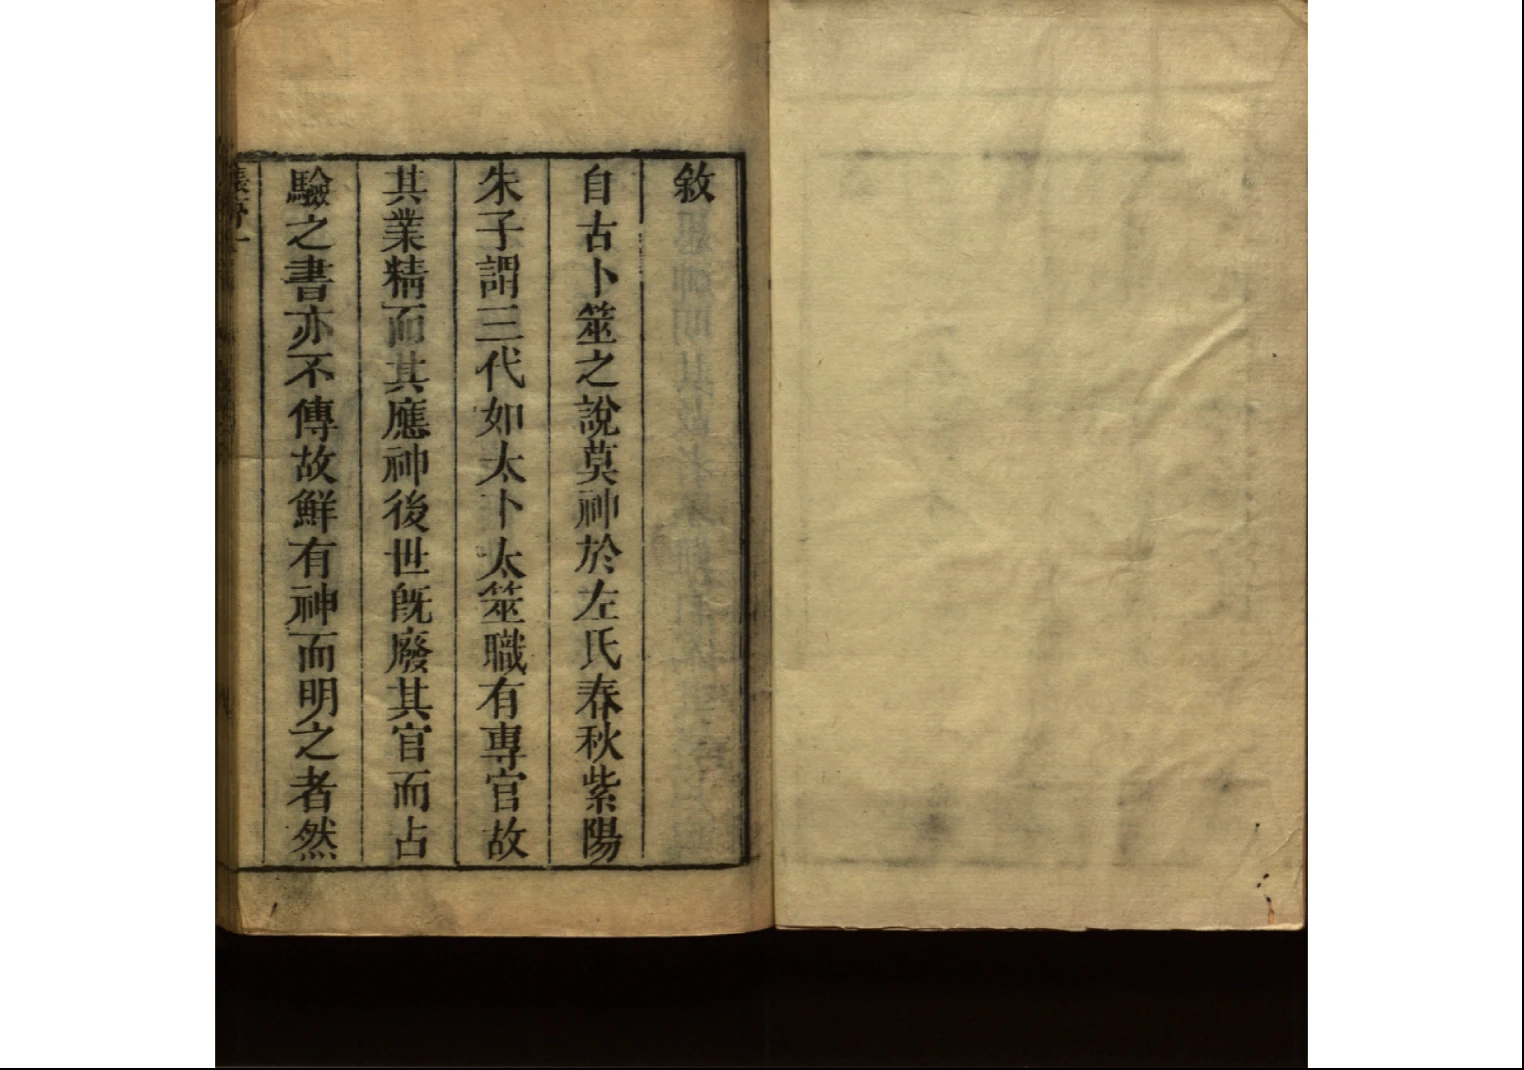 敘
自古卜筮之說莫神於左氏春秋紫陽
朱子謂三代如太卜太筮職有專官故
其業精而其應神後世旣廢其官而占
驗之書亦不傳故鮮有神而明之者然